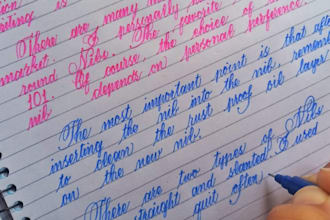 writing is
There are many
market. I personally
round Nibs. The favorite
101. Of course, the choice of
nib depends on personal preference.
The most important point is that after
inserting the nib into the nib, remem
to clean the rust proof oil layer
on the new nib.
There are two types of Nibs
straight and slanted. I used
quit often